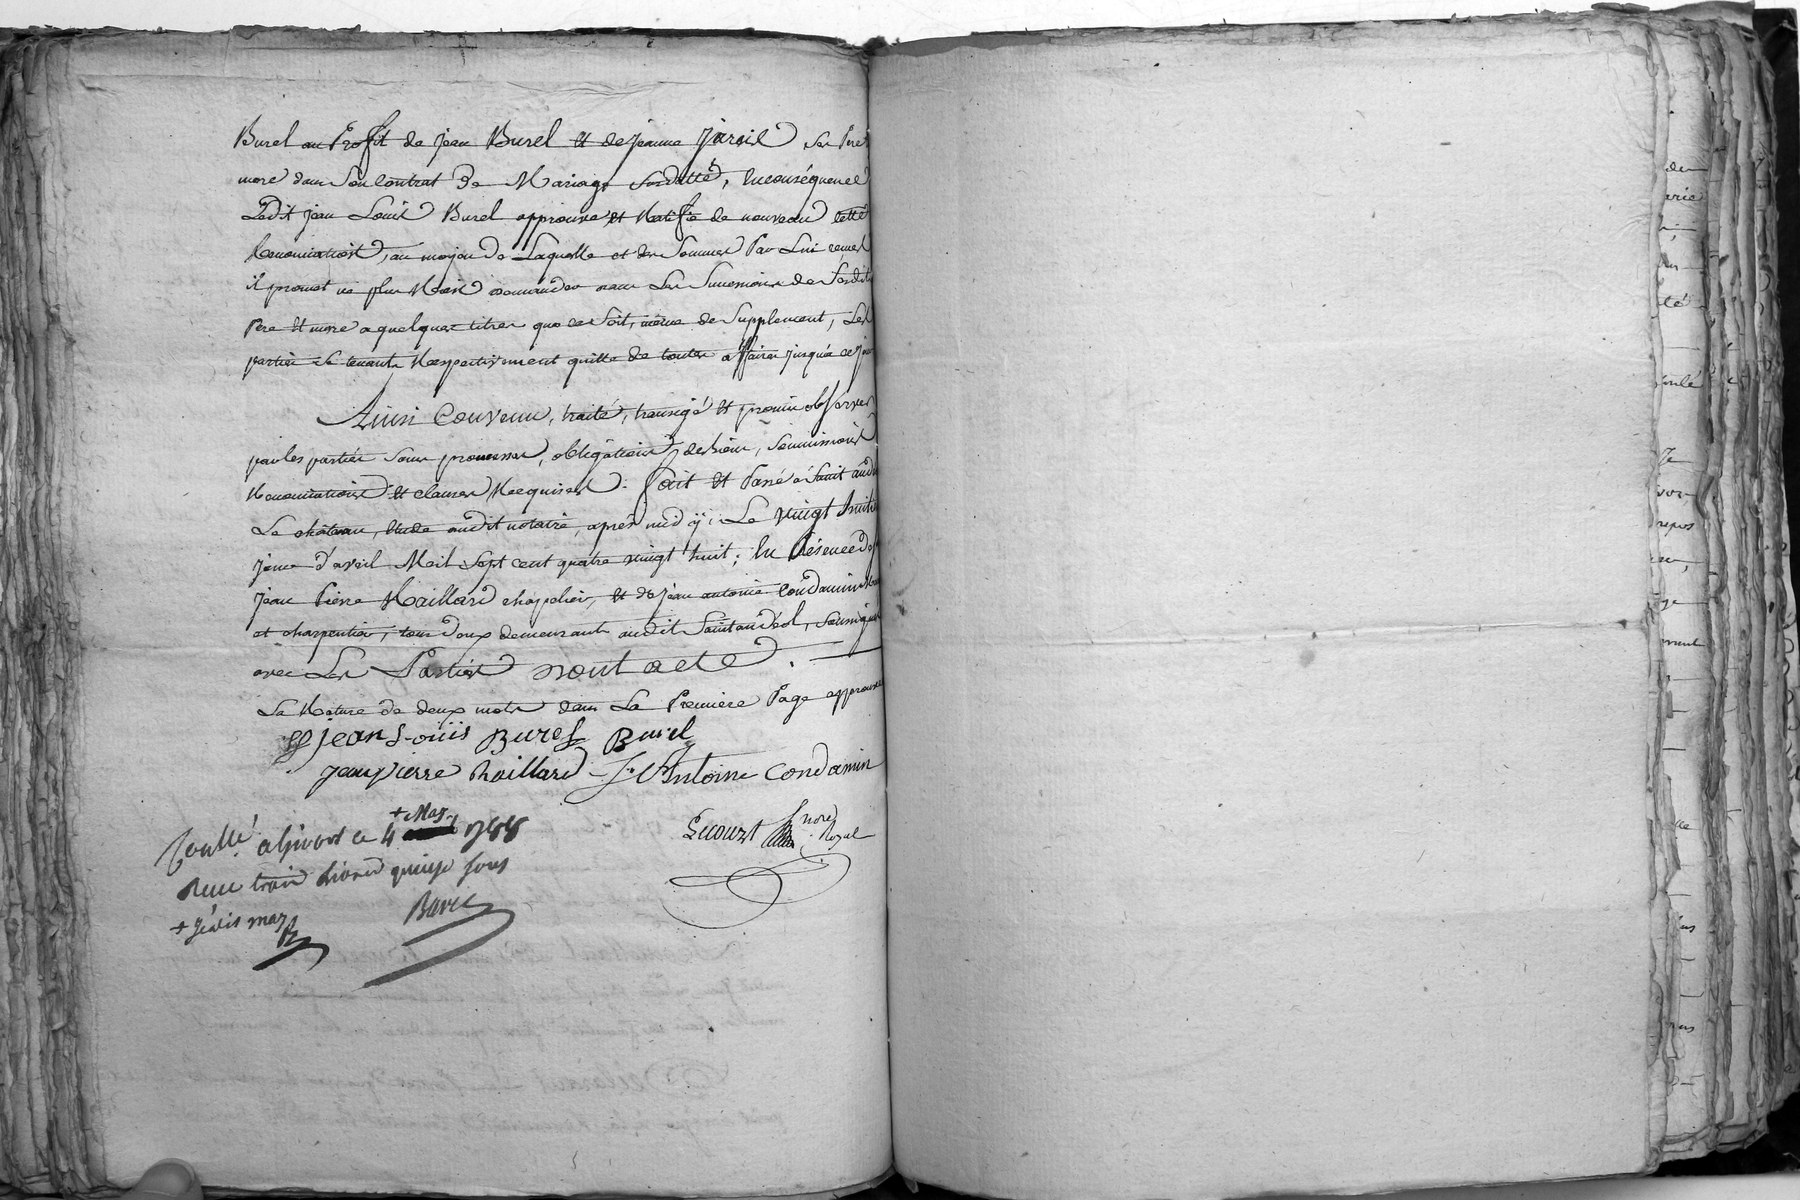 Burel au Profit de jean Burel et de jeanne jaroil ses Pere
mere dans son contrat de Mariage susdatté, En conséquence
Ledit jean Louis Burel approuve et Ratifie de nouveau cette
Renonciation, au moyen de Laquelle et des sommes Par Lui
il promet ne plus Rien demander dans Les Successions de sesdits
Pere et mere a quelques titres que ce soit, même de supplement, Les
parties se tenants Respectivement quitte de toutes affaires jusqu'a ce jour
Ainsi Convenu, traité, transigé et promis observer
par les parties sous promesses, obligations de biens, soumissions
Renonciations et clauses Requises. fait et Passé a saint andeol
Le château, Etude dudit notaire, après midy, Le vingt huitie
jeme d'avril Mail Sept cent quatre vingt huit; En Présence de
jean Pierre Raillard chapelier, et de jean antoine Condamin
et charpentier, tous deux demeurants audit Saint andéol, soussignés
avec Les Parties dont acte.
La Rature de deux mots dans La Premiere Page approuvée
jean Louis Burel Burel
jean pierre Raillard Antoine Condamin
+ May
Conllé a givors ce 4 1788
Reçu trois livres quinze sous
Ecouzt nore Royal
+ je dis may